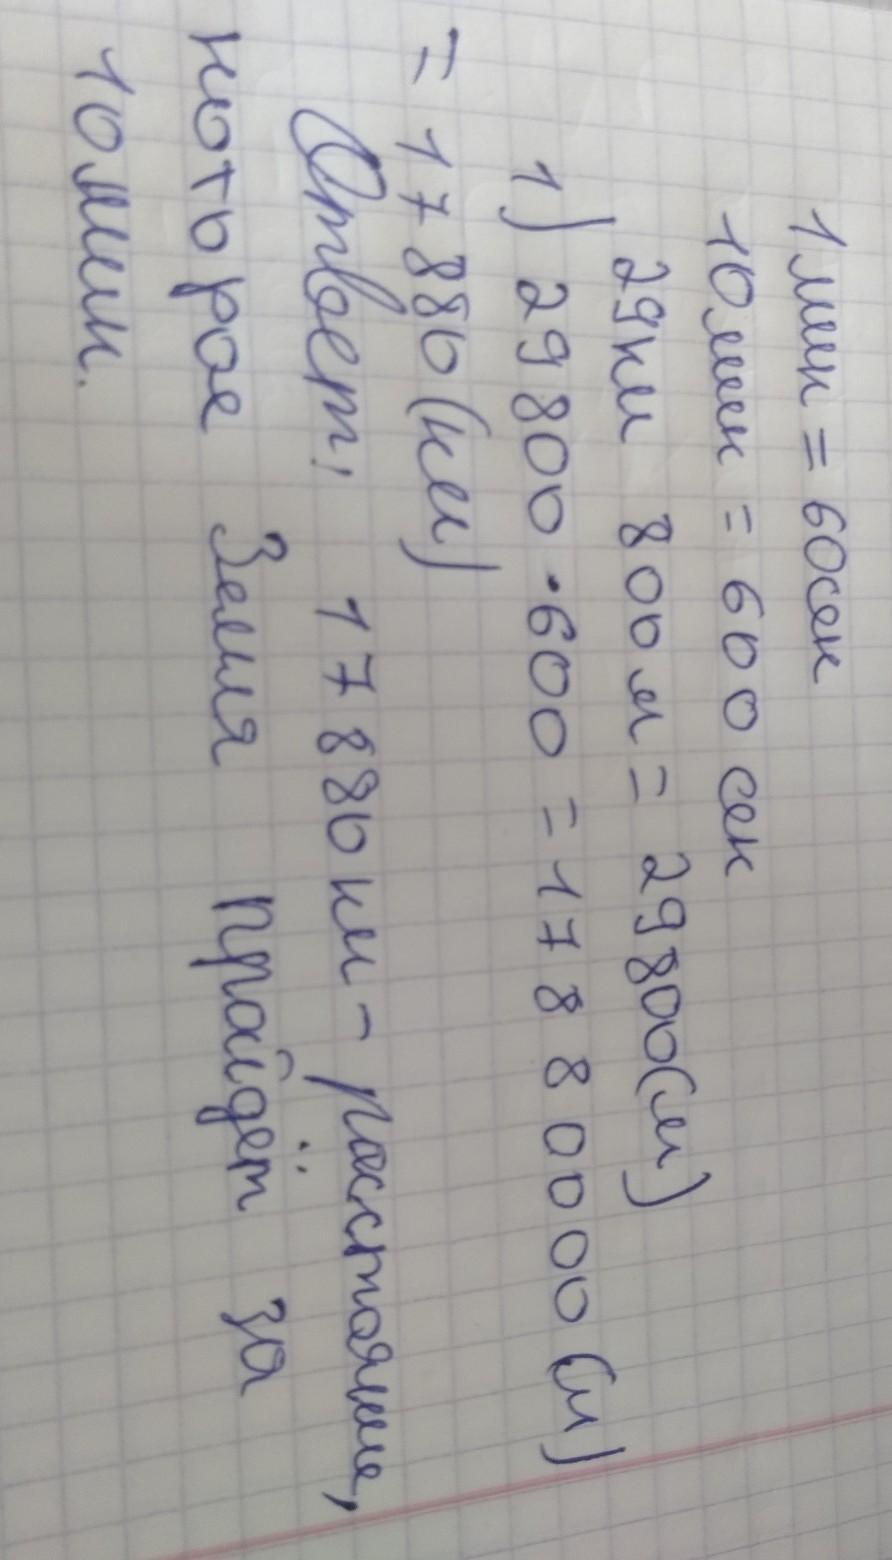 1 мин = 60сек
10 мин = 600 сек
29км 800м = 29800(м)
1) 29800·600 = 17880000(м)
= 17880(км)
Ответ: 17880км - расстояние,
которое Земля пройдёт за
10 мин.